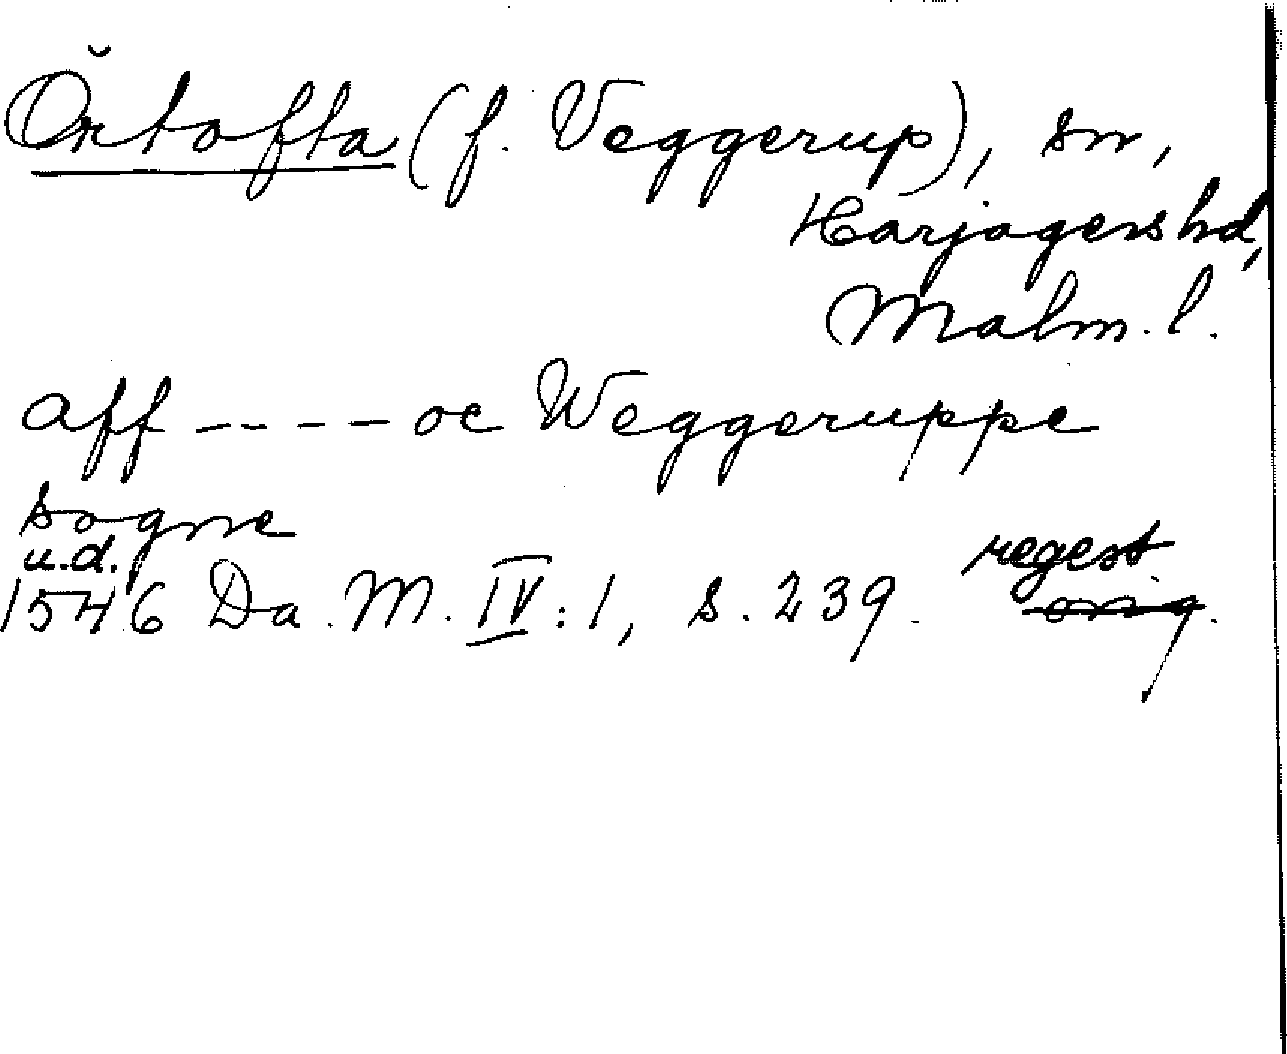 Örtofta (f. Veggerup), sn,
Harjagers hd,
Malm. l.
aff ---- oc Weggeruppe
sogne
u.d.
1546 Da. M. IV: 1, s. 239. regest
orig.